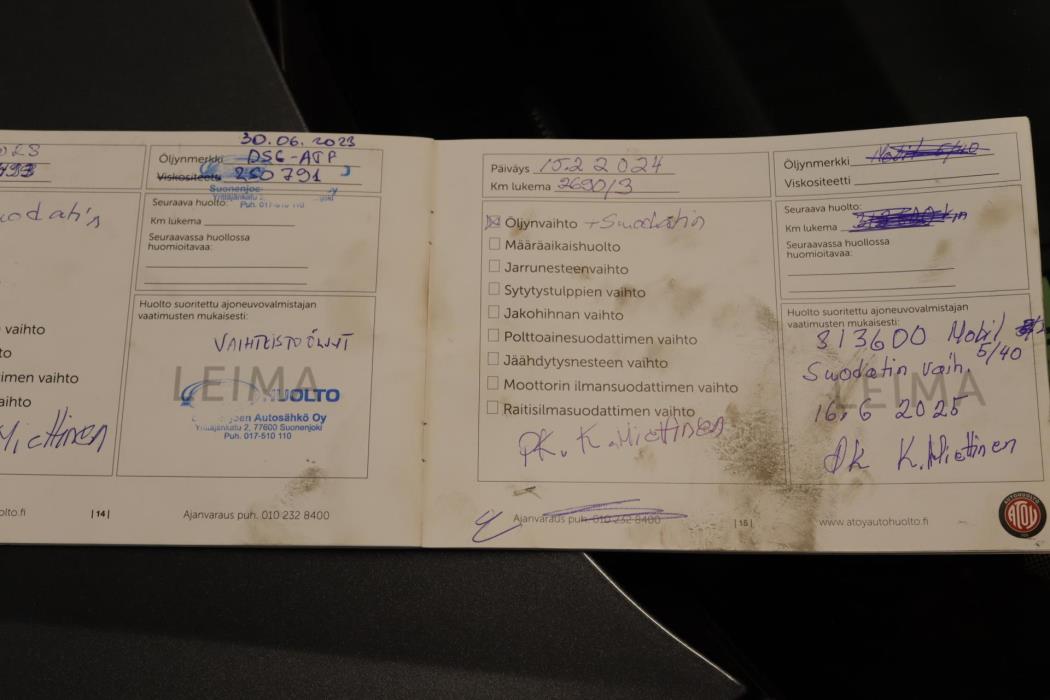 suodatin
vaihto
imen vaihto
aihto
Miettinen
olto.fi
|14|
30.06.2023
Öljynmerkki DSG-ATP
Viskositeetti 250791
Suonenjoe
Yrittäjänkatu 2,
Puh. 017-510 110
Seuraava huolto:
Km lukema
Seuraavassa huollossa
huomioitavaa:
Huolto suoritettu ajoneuvovalmistajan
vaatimusten mukaisesti:
VAIHTEISTOÖLJYT
LEIMA
HUOLTO
Autosähkö Oy
Yrittäjänkatu 2, 77600 Suonenjoki
Puh. 017-510 110
Ajanvaraus puh. 010 232 8400
Päiväys 15.2 2024
Km lukema 269013
Öljynvaihto + Suodatin
Määräaikaishuolto
Jarrunesteenvaihto
Sytytystulppien vaihto
Jakohihnan vaihto
Polttoainesuodattimen vaihto
Jäähdytysnesteen vaihto
Moottorin ilmansuodattimen vaihto
Raitisilmasuodattimen vaihto
PK. K. Miettinen
Ajanvaraus puh. 010 232 8400
|15|
Öljynmerkki
Viskositeetti
Seuraava huolto:
Km lukema
Seuraavassa huollossa
huomioitavaa:
Huolto suoritettu ajoneuvovalmistajan
vaatimusten mukaisesti:
313600 Mobil
5/40
Suodatin vaih.
LEIMA
16.6 2025
PK K. Miettinen
www.atoyautohuolto.fi
AUTOHUOLTO
ATOY